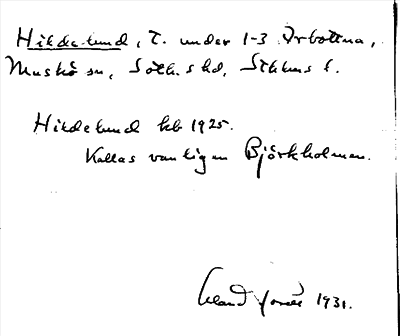 Hildelund, T. under 1-3 Arbottna,
Muskö sn, Soth. shd, Sthlms l.
Hildelund kb 1925.
Kallas vanligen Björkholmen.
1931.